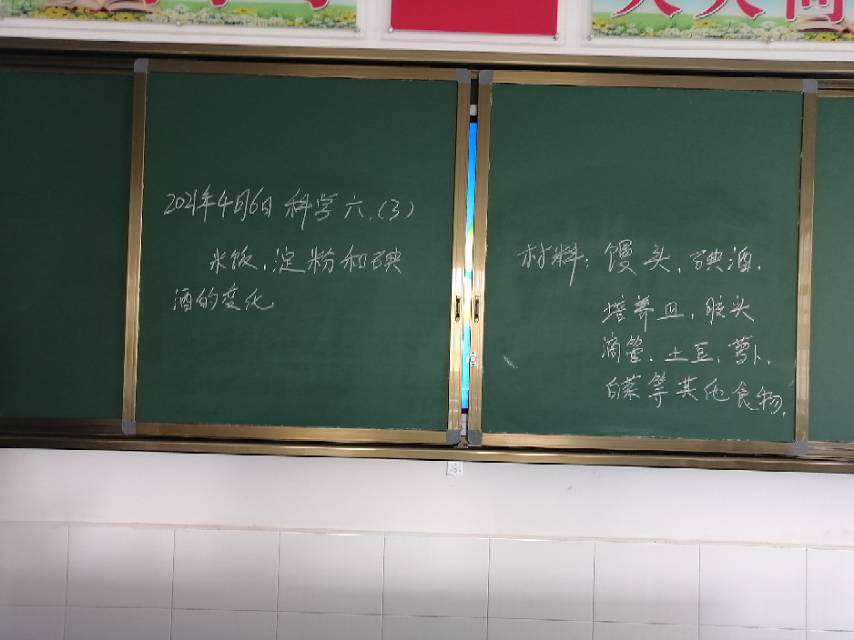 2021年4月6日 科学 六.(3)
米饭,淀粉和碘
酒的变化
材料: 馒头、碘酒.
培养皿、胶头
滴管、土豆、萝卜.
白菜等其他食物.